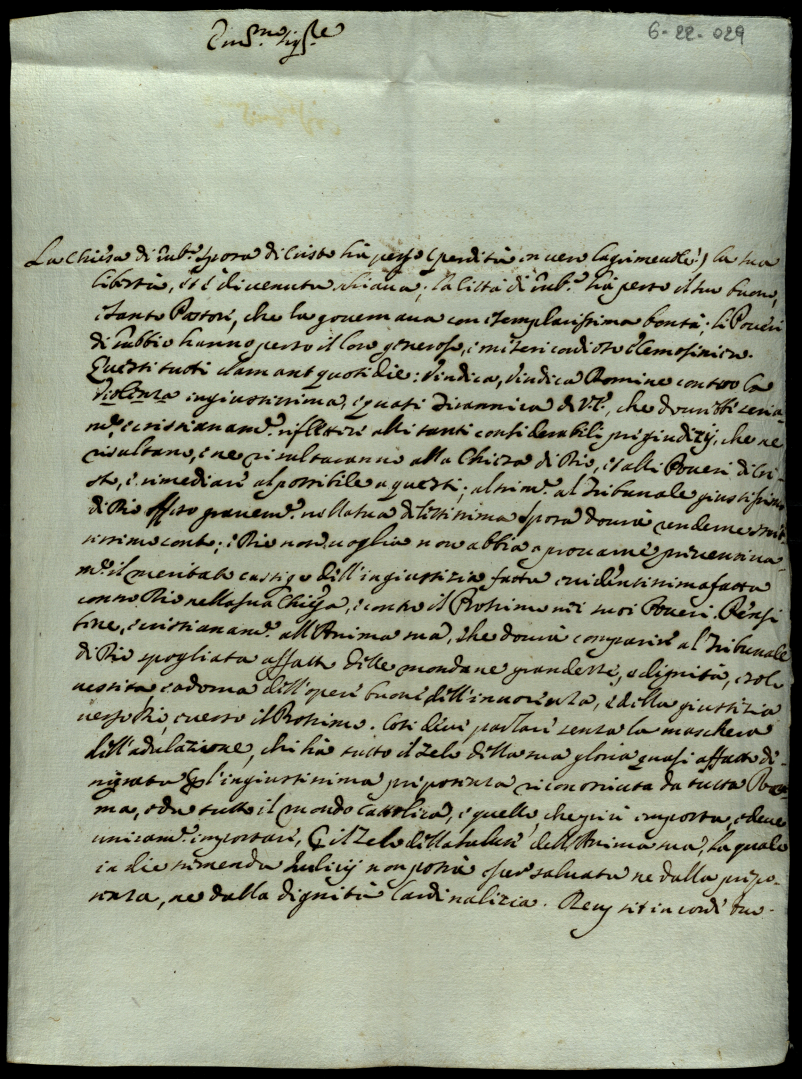 Em.mo Sig.re
6-22-029
La Chiesa di Gub.o sposa di Cristo hà perso (perdita in vero lagrimeuole!) la sua
libertà, et è diuenuta schiaua; la Città di Gub.o hà perso il suo buono,
e Santo Pastore, che la gouernaua con esemplarissima bontà; li Poueri
di Gubbio hanno perso il loro generoso, e misericordioso Elemosiniero.
Questi tutti clamant quotidie: Vindica, Vindica Domine contro la
Violenza ingiustissima, e quasi Tirannica di V.E., che dourebbe seria-
m.e, e cristianam.e riflettere alli tanti considerabili pregiudizij, che ne
risultano, e ne risultaranno alla Chiesa di Dio, et alli Poueri di Cri-
sto, e rimediare al possibile a questi; altrim.e al Tribunale giustissimo
di Dio offeso grauem.e nella sua dilettissima sposa dourà renderne stret-
tissimo conto; e Dio non uoglia non abbia a prouarne preuentiua-
m.e il meritato castigo dell'ingiustizia fatta euidentissima fatta
contro Dio nella sua Chiesa, e contro il Prossimo nei suoi Poueri. Pensi
bene, e cristianam.e all'Anima sua, che dourà comparire al Tribunale
di Dio spogliata affatto delle mondane grandezze, e dignità, e solo
uestita, e adorna dell'opere buone dell'innocenza, e della giustizia
uerso Dio, e uerso il Prossimo. Così deue parlare senza la maschera
dell'adulazione, chi hà tutto il zelo della sua gloria quasi affatto de-
nigrata per l'ingiustissima prepotenza riconosciuta da tutta Ro-
ma, e da tutto il mondo Cattolico, e quello, che più importa, e deue
unicam.e importare, per il zelo della salute dell'Anima sua, la quale
in die tremenda Iudicij non potrà esser saluata ne dalla prepo-
tenza, ne dalla dignità Cardinalizia. Deus sit in corde tuo.